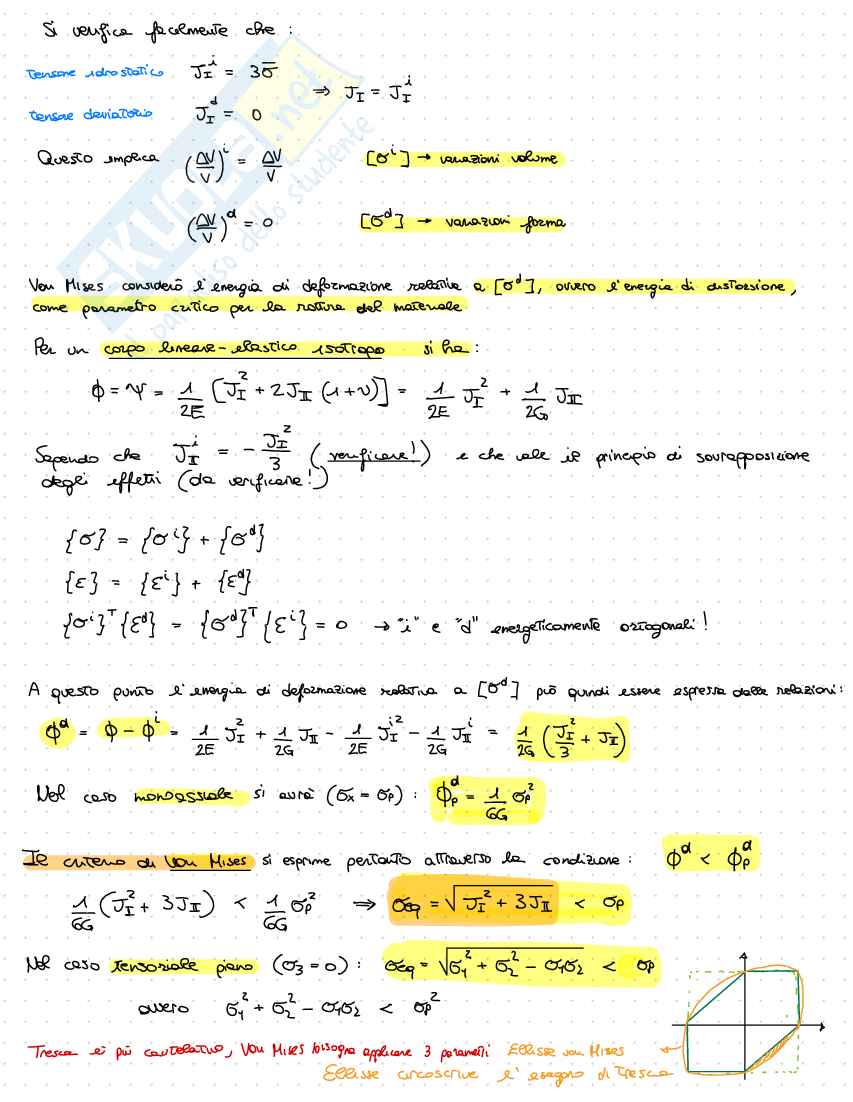 Si verifica facilmente che :
tensore idrostatico J_I^i = 3σ̄
⇒ J_I = J_I^i
tensore deviatorio J_I^d = 0
Questo implica (ΔV/V)^i = ΔV/V [σ^i] → variazioni volume
(ΔV/V)^d = 0 [σ^d] → variazioni forma
SKUOLA.net
il paradiso dello studente
Von Mises considerò l'energia di deformazione relativa a [σ^d], ovvero l'energia di distorsione,
come parametro critico per la rottura del materiale
Per un corpo lineare-elastico isotropo si ha :
ϕ = Ψ = 1/2E [J_I^2 + 2J_II (1+ν)] = 1/2E J_I^2 + 1/2G J_II
Sapendo che J_II^i = - J_I^2/3 (verificare!) e che vale il principio di sovrapposizione
degli effetti (da verificare!)
{σ} = {σ^i} + {σ^d}
{ε} = {ε^i} + {ε^d}
{σ^i}^T {ε^d} = {σ^d}^T {ε^i} = 0 → "i" e "d" energeticamente ortogonali!
A questo punto l'energia di deformazione relativa a [σ^d] può quindi essere espressa dalle relazioni:
ϕ^d = ϕ - ϕ^i = 1/2E J_I^2 + 1/2G J_II - 1/2E J_I^i2 - 1/2G J_II^i = 1/2G (J_I^2/3 + J_II)
Nel caso monoassiale si avrà (σx = σp) : ϕ_p^d = 1/6G σp^2
Il criterio di Von Mises si esprime pertanto attraverso la condizione : ϕ^d < ϕ_p^d
1/6G (J_I^2 + 3J_II) < 1/6G σp^2 ⇒ σeq = √(J_I^2 + 3J_II) < σp
Nel caso tensoriale piano (σ3 = 0) : σeq = √(σ1^2 + σ2^2 - σ1σ2) < σp
ovvero σ1^2 + σ2^2 - σ1σ2 < σp^2
Tresca è più cautelativo, Von Mises bisogna applicare 3 parametri Ellisse von Mises
Ellisse circoscrive l'esagono di Tresca